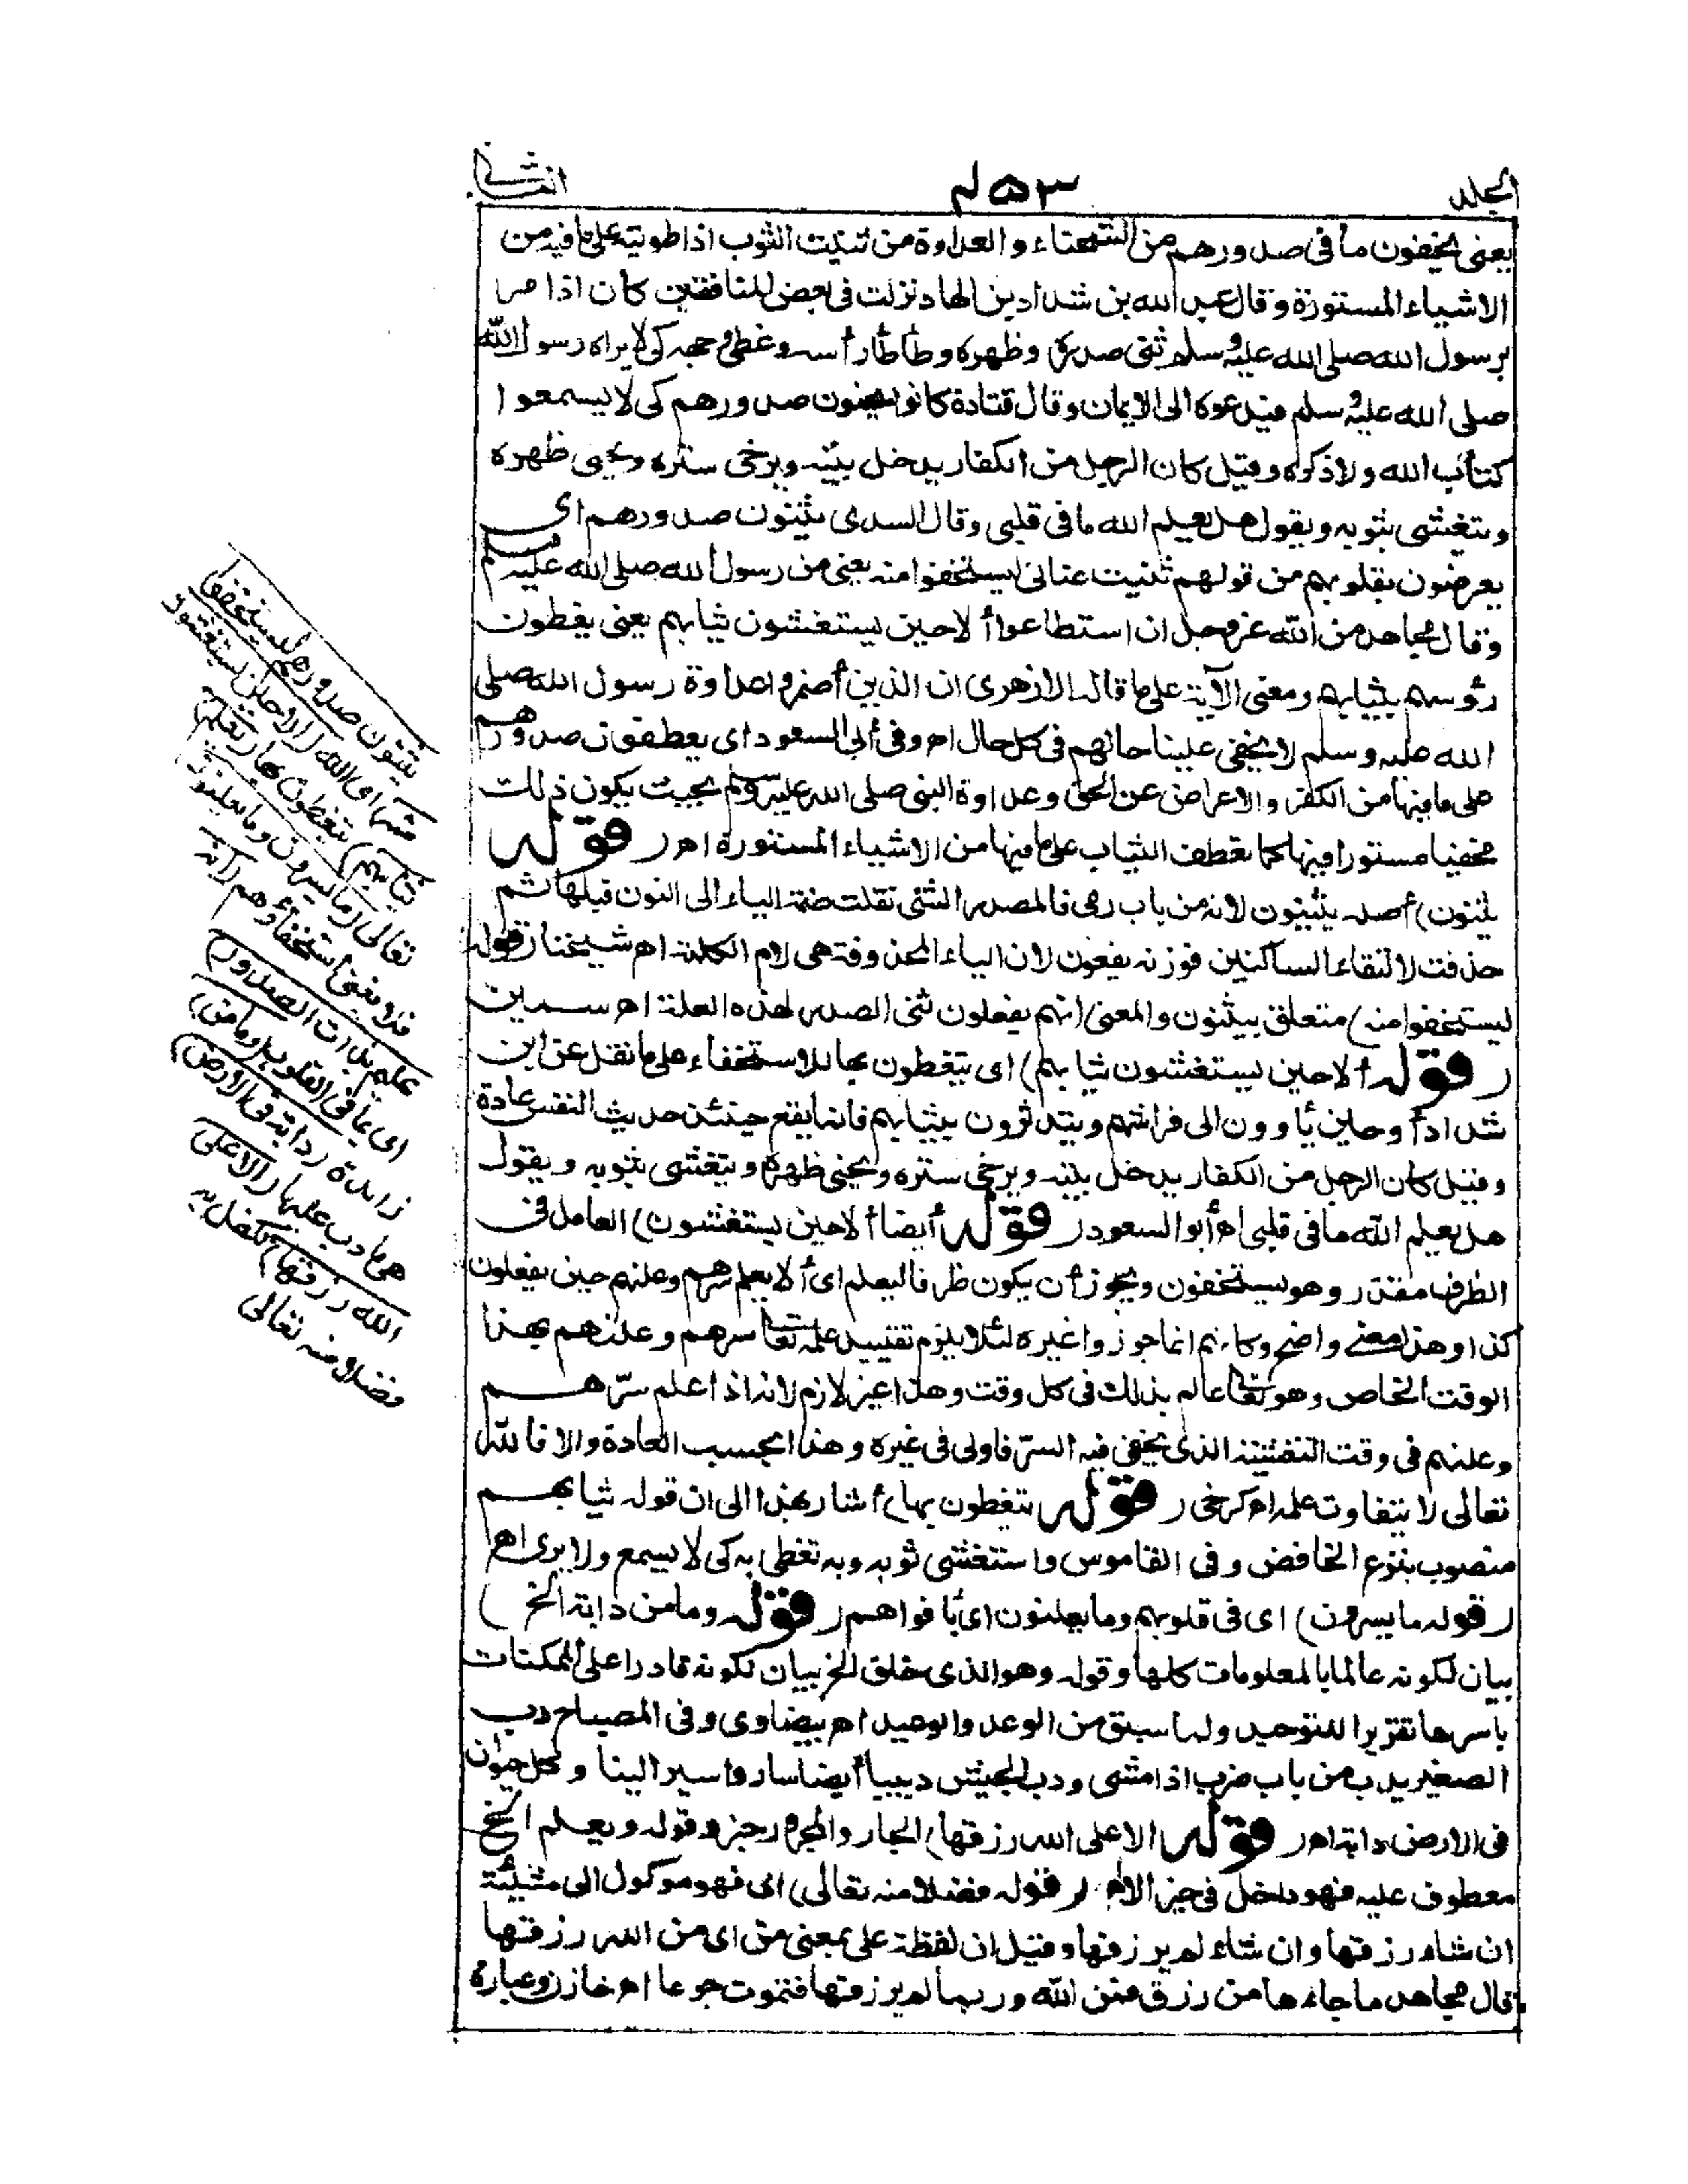 المجلد
٤٥٣
الثانى
يعنى يخفون ما فى صدورهم من الشحناء والعداوة من ثنيت الثوب اذا طويته على ما فيه من
الاشياء المستورة وقال عبد الله بن شداد بن الهاد نزلت فى بعض المنافقين كان اذا مر
برسول الله صلى الله عليه وسلم ثنى صدره وظهره وطأطأ رأسه وغطى وجهه كى لا يراه رسول الله
صلى الله عليه وسلم فيدعوه الى الايمان وقال قتادة كانوا يحنون صدورهم كى لا يسمعوا
كتاب الله ولا ذكره وقيل كان الرجل من الكفار يدخل بيته ويرخى ستره ويحنى ظهره
ويتغشى بثوبه ويقول هل يعلم الله ما فى قلبى وقال السدى يثنون صدورهم اى
يعرضون بقلوبهم من قولهم ثنيت عنانى ليستخفوا منه يعنى من رسول الله صلى الله عليه وسلم
وقال مجاهد من الله عز وجل ان استطاعوا ألا حين يستغشون ثيابهم يعنى يغطون
رؤسهم بثيابهم ومعنى الآية على ما قاله الازهرى ان الذين أضمروا عداوة رسول الله صلى
الله عليه وسلم لا يخفى علينا حالهم فى كل حال اه وفى أبى السعود اى يعطفون صدورهم
على ما فيها من الكفر والاعراض عن الحق وعداوة النبى صلى الله عليه وسلم بحيث يكون ذلك
مخفيا مستورا فيها كما تعطف الثياب على ما فيها من الاشياء المستورة اه (قوله
يثنون) أصله يثنيون لانه من باب رمى فالمصدر الثنى نقلت ضمة الياء الى النون قبلها ثم
حذفت لالتقاء الساكنين فوزنه يفعون لان الياء المحذوفة هى لام الكلمة اه شيخنا (قوله
ليستخفوا منه) متعلق بيثنون والمعنى انهم يفعلون ثنى الصدر لهذه العلة اه سمين
(قوله ألا حين يستغشون ثيابهم) اى يتغطون بها للاستخفاء على ما نقل عن ابن
شداد أو حين يأوون الى فراشهم ويتدثرون بثيابهم فانه يقع حينئذ حديث النفس عادة
وقيل كان الرجل من الكفار يدخل بيته ويرخى ستره ويحنى ظهره ويتغشى بثوبه ويقول
هل يعلم الله ما فى قلبى اه أبو السعود (قوله أيضا ألا حين يستغشون) العامل فى
الظرف مقدر وهو يستخفون ويجوز أن يكون ظرفا ليعلم اى ألا يعلم سرهم وعلنهم حين يفعلون
كذا وهذا معنى واضح وكانهم انما جوزوا غيره لئلا يلزم تقييد علمه تعالى سرهم وعلنهم بهذا
الوقت الخاص وهو تعالى عالم بذلك فى كل وقت وهذا غير لازم لانه اذا علم سرهم
وعلنهم فى وقت التغشية الذى يخفى فيه السر فاولى فى غيره وهذا بحسب العادة والا فالله
تعالى لا يتفاوت علمه اه كرخى (قوله يتغطون بها) أشار بهذا الى ان قوله ثيابهم
منصوب بنزع الخافض وفى القاموس واستغشى ثوبه وبه تغطى به كى لا يسمع ولا يرى اه
(قوله ما يسرون) اى فى قلوبهم وما يعلنون اى بأفواههم (قوله وما من دابة الخ)
بيان لكونه عالما بالمعلومات كلها وقوله وهو الذى خلق الخ بيان لكونه قادرا على الممكنات
باسرها تقريرا للتوحيد ولما سبق من الوعد والوعيد اه بيضاوى وفى المصباح دب
الصغير يدب من باب ضرب اذا مشى ودب الجيش دبيبا أيضا ساروا سيرا لينا وكل حيوان
فى الارض دابة اه (قوله الا على الله رزقها) الجار والمجرور خبر وقوله ويعلم الخ
معطوف عليه فهو داخل فى حيز الا اه (قوله فضلا منه تعالى) اى فهو موكول الى مشيئته
ان شاء رزقها وان شاء لم يرزقها وقيل ان لفظة على بمعنى من اى من الله رزقها
قال مجاهد ما جاءها من رزق فمن الله وربما لم يرزقها فتموت جوعا اه خازن وعبارة
يثنون صدورهم ليستخفوا
منه) اى الله (ألا حين يستغشون
ثيابهم) يتغطون بها (يعلم)
تعالى (ما يسرون وما يعلنون)
فلا يغنى استخفاؤهم (انه
عليم بذات الصدور)
اى بما فى القلوب (وما من)
زائدة (دابة فى الارض)
هى ما دب عليها (الا على
الله رزقها) تكفل به
فضلا منه تعالى